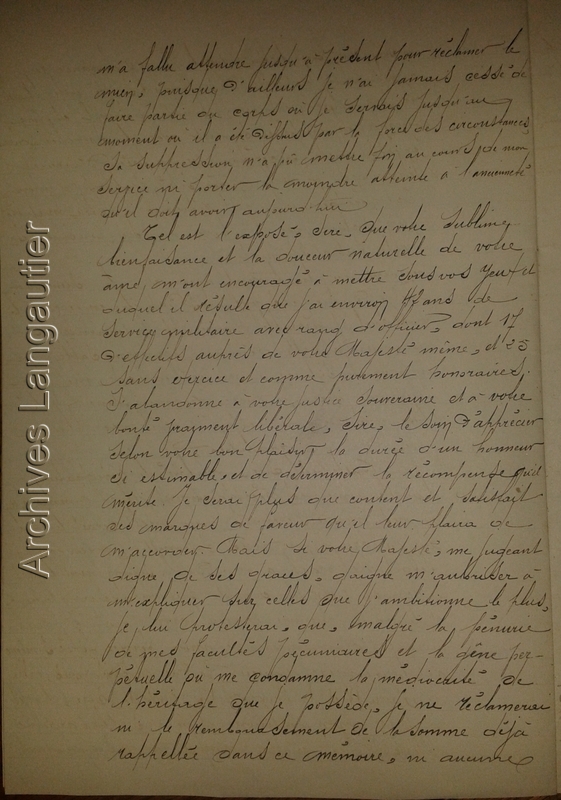 m'a fallu attendre jusqu'à présent pour réclamer le
mien, puisque d'ailleurs je n'ai jamais cessé de
faire partie du corps où je servais jusqu'au
moment où il a été dissous par la force des circonstances,
sa suppression n'a pu mettre fin au cours de mon
service ni porter la moindre atteinte à l'ancienneté
qu'il doit avoir aujourd'hui
Tel est l'exposé, Sire, que votre sublime
bienfaisance et la douceur naturelle de votre
âme, m'ont encouragé à mettre sous vos yeux et
duquel il résulte que j'ai environ ans de
service militaire avec rang d'officier, dont 17
d'effectifs auprès de votre Majesté même, et 23
sans exercice et comme purement honoraires.
J'abandonne à votre justice souveraine et à votre
bonté vraiment libérale, Sire, le soin d'apprécier
selon votre bon plaisir la durée d'un honneur
si estimable, et de déterminer la récompense qu'il
mérite. Je serai plus que content et satisfait
des marques de faveur qu'il leur plaira de
m'accorder. Mais si votre Majesté, me jugeant
digne de ses graces, daigne m'autoriser à
m'expliquer sur celles que j'ambitionne le plus,
je lui protesterai, que, malgré la pénurie
de mes facultés pécuniaires et la gêne per-
pétuelle où me condamne la médiocrité de
l'héritage que je possède, je ne réclamerai
ni le remboursement de la somme déjà
rappellée dans ce mémoire, ni aucune
Archives Langautier